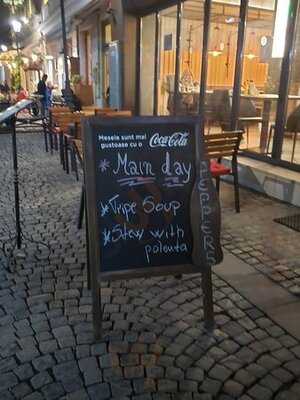 Mesele sunt mai
gustoase cu o
Coca-Cola
* Main day
* Tripe Soup
* Stew with
polenta
PEPPERS